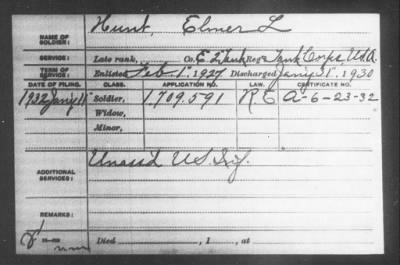 NAME OF SOLDIER: Hunt, Elmer L
SERVICE: Late rank, Co. E 2" Tank Reg't Tank Corps, U.S.A.
TERM OF SERVICE: Enlisted Feb. 1" 1927 Discharged Jany 31" 1930
DATE OF FILING. CLASS. APPLICATION NO. LAW. CERTIFICATE NO.
1932 Jany 11" Soldier, 1.709.591 A-6-23-32
Widow,
Minor,
ADDITIONAL SERVICES: Unassd U.S. Inf.
REMARKS:
Died , 1 , at